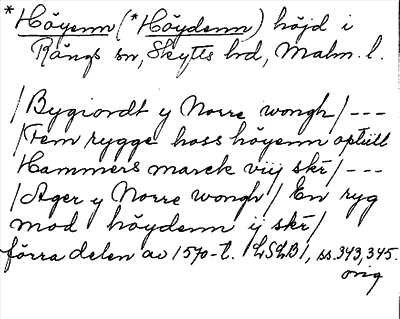 *Höyenn (*Höydenn) höjd i
Rängs sn, Skytts hd, Malm. l.
/Bygiordt y Norre wongh/ ---
/Fem rygge hoss höyenn optill
Hammers marck viij skr/ ---
/Ager y Norre wongh/ En ryg
mod höydenn ij skr/
förra delen av 1570-t. LSLB1, ss. 343, 345.
orig